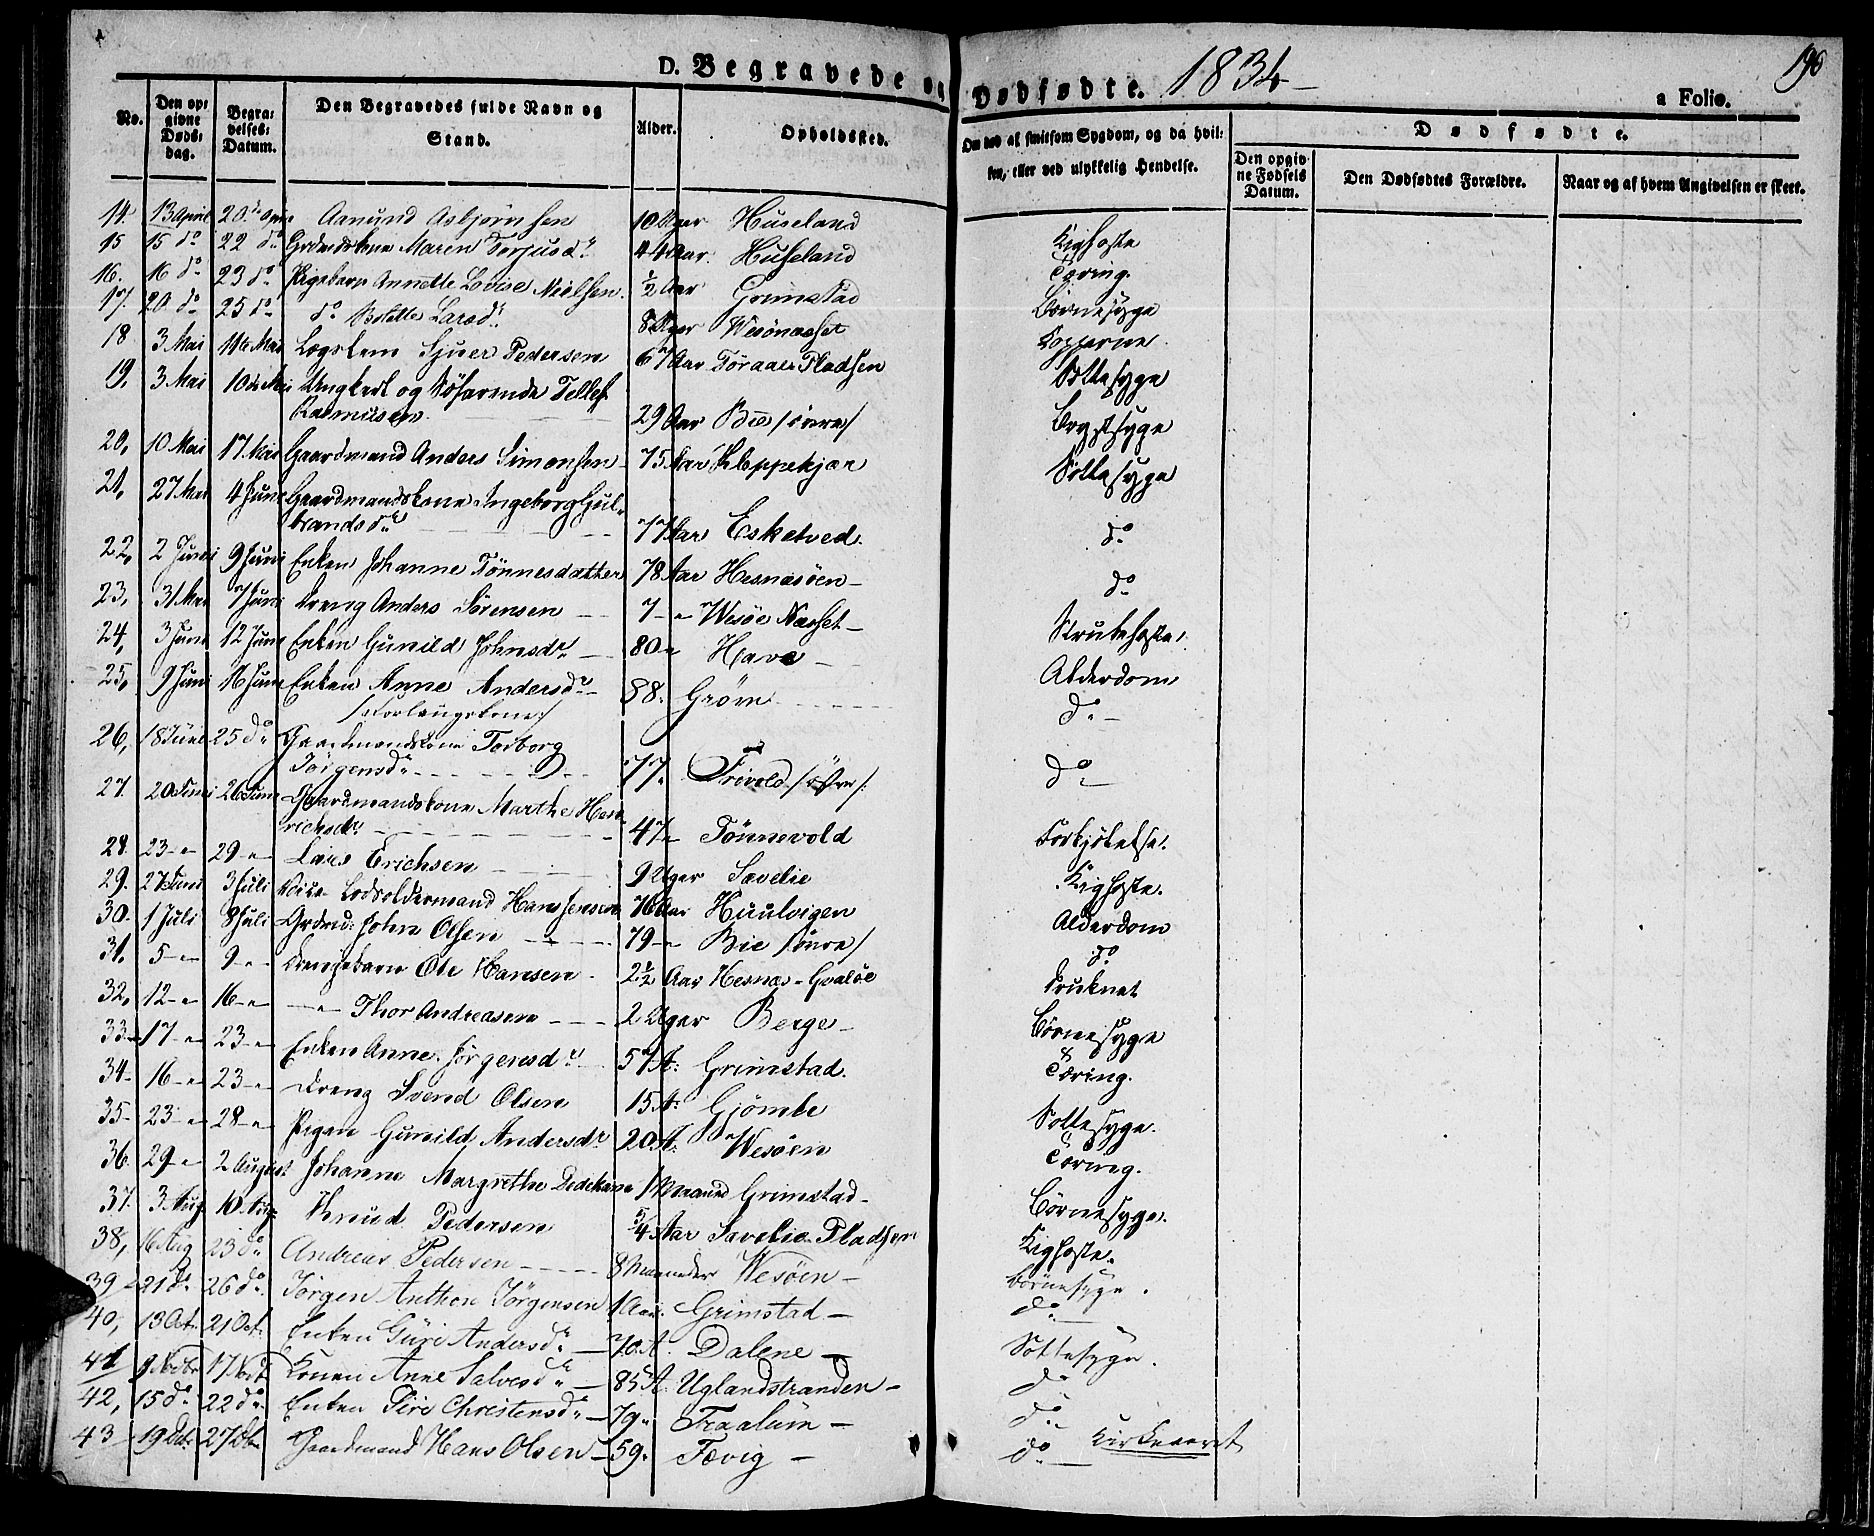 D. Begravede og Dødfødte. 1834 190
a Folio.
No. Den opgivne Dødsdag. Begravelses Datum. Den Begravedes fulde Navn og Stand. Alder. Opholdssted. Om død af smitsom Sygdom, og da hvilken, eller ved ulykkelig Hendelse. Dødfødte.
Den opgivne Fødsels Datum. Den Dødfødtes Forældre. Naar og af hvem Angivelsen er skeet.
14. 13 April 20de April Aanund Asbjørnsen 10 Uger Huseland Kighoste
15 15 do 22 do Grdmdskone Maren Torjusdr 44 Aar. Huseland Tæring.
16. 16 do 23 do Pigebarn Annette Lovise Nielsen. 1/2 Aar Grimstad Børnesyge
17. 20 do 25 do do Larsdr 8 Uger Wesønæsset Kopperne.
18 3 Mai 11te Mai Lægslem Sjuer Pedersen 67 Aar Pladsen Sottesyge
19, 3 Mai 10de Mai Ungkarl og Søfarende Tellef
Rasmusen. 29 Aar Bie /øvre/ Brystsyge
20, 10 Mai 17 Mai Gaardmand Anders Simonsen 75 Aar Kleppekjær Sottesyge
21, 27 Mai 4 Juni Gaardmandskone Ingeborg Gul-
brandsdr 77 Aar Esketved. do
22, 2 Juni 9 Juni Enken Johanne Tönnesdatther 78 Aar Hesnæsöen do
23, 31 Mai 7 Juni Dreng Anders Sörensen 7 - Wesöe Næsset Strubehoste.
24, 3 Juni 12 Juni Enken Gunild Johnsdr 80 - Have Alderdom
25, 9 Juni 16 Juni Enken Anne Andersdr 88. Gröm do
26, 18 Juni 25 do Gaardmandskone Torborg
Jörgensdr 77. Frivold /östre/. do
27. 20 Juni 26 Juni Gaardmandskone Marthe Hen-
richsdr 47 - Tönnevold Forkjølelse.
28. 23 - 29 - Lars Erichsen 9 Uger Savelie Kighoste.
29. 27 Juni 3 Juli Lodsoldermand Hans Jensen 76 Aar Huulvigen Alderdom
30. 1 Juli 8 Juli Grdmd: John Olsen 79 - Bie /övre/ do
31. 5 - 9 - Drengebarn Ole Hansen 2 1/2 Aar Hesnæs-Gvalöe Druknet
32, 12 - 16 - - Thor Andreasen 2 Uger Berge Börnesyge
33 17 - 23 - Enken Anne Jörgensdr 57 A: Grimstad. Tæring.
34 16 - 23 - Dreng Svend Olsen 15 A: Gjömle Sottesyge.
35 23 - 28 - Pigen Gunild Andersdr 20 A: Wesöen Tæring.
36. 29 - 2 August Johanne Margrethe Dedekam 1 Maaned Grimstad Börnesyge.
37. 3 Aug 10 Aug Knud Pedersen 5/4 Aar Savelie Pladsen Kighoste.
38, 16 Aug 23 do Andreas Pedersen 8 Maaneder Wesöen börnesyge.
39 21 do 26 do Jörgen Anthon Jörgensen 1 Aar. Grimstad do
40, 13 Oct. 21 Oct. Enken Güri Andersdr 70 A. Dalene Sottesyge.
41 9 Novbr 17 Novb Konen Anne Salvesdr 85 A. Uglandstranden do
42, 15 do 22 do Enken Siri Christensdr 79. Fraalum do
43 19 Db. 27 Db. Gaardmand Hans Olsen 59. Fævig do